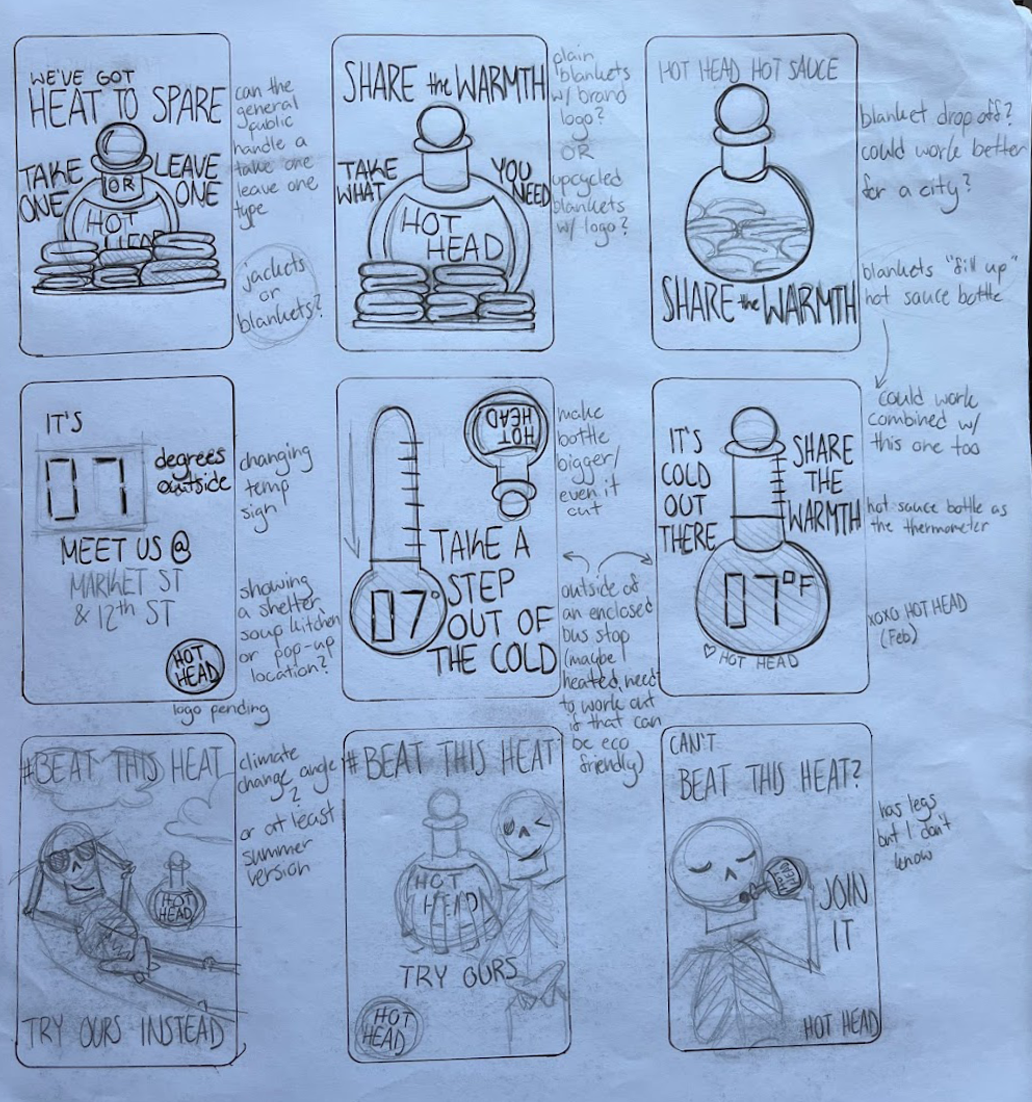 WE'VE GOT
HEAT TO SPARE
TAKE
ONE
OR
LEAVE
ONE
HOT
HEAD
can the
general
public
handle a
take one
leave one
type
jackets
or
blankets?
SHARE the WARMTH
TAKE
WHAT
YOU
NEED
HOT
HEAD
plain
blankets
w/ brand
logo?
OR
upcycled
blankets
w/ logo?
HOT HEAD HOT SAUCE
SHARE the WARMTH
blanket drop off?
could work better
for a city?
blankets "fill up"
hot sauce bottle
could work
combined w/
this one too
IT'S
07
degrees
outside
MEET US @
MARKET ST
& 12th ST
HOT
HEAD
changing
temp
sign
showing
a shelter,
soup kitchen
or pop-up
location?
logo pending
HOT
HEAD
07°
TAKE A
STEP
OUT OF
THE COLD
make
bottle
bigger/
even it
out
outside of
an enclosed
bus stop
(maybe
heated, need
to work out
if that can
be eco
friendly)
IT'S
COLD
OUT
THERE
SHARE
THE
WARMTH
07°F
♡ HOT HEAD
hot sauce bottle as
the thermometer
xoxo HOT HEAD
(Feb)
#BEAT THIS HEAT
HOT
HEAD
TRY OURS INSTEAD
climate
change angle
?
or at least
summer
version
#BEAT THIS HEAT
HOT
HEAD
TRY OURS
HOT
HEAD
CAN'T
BEAT THIS HEAT?
HOT
HEAD
JOIN
IT
HOT HEAD
has legs
but I don't
know